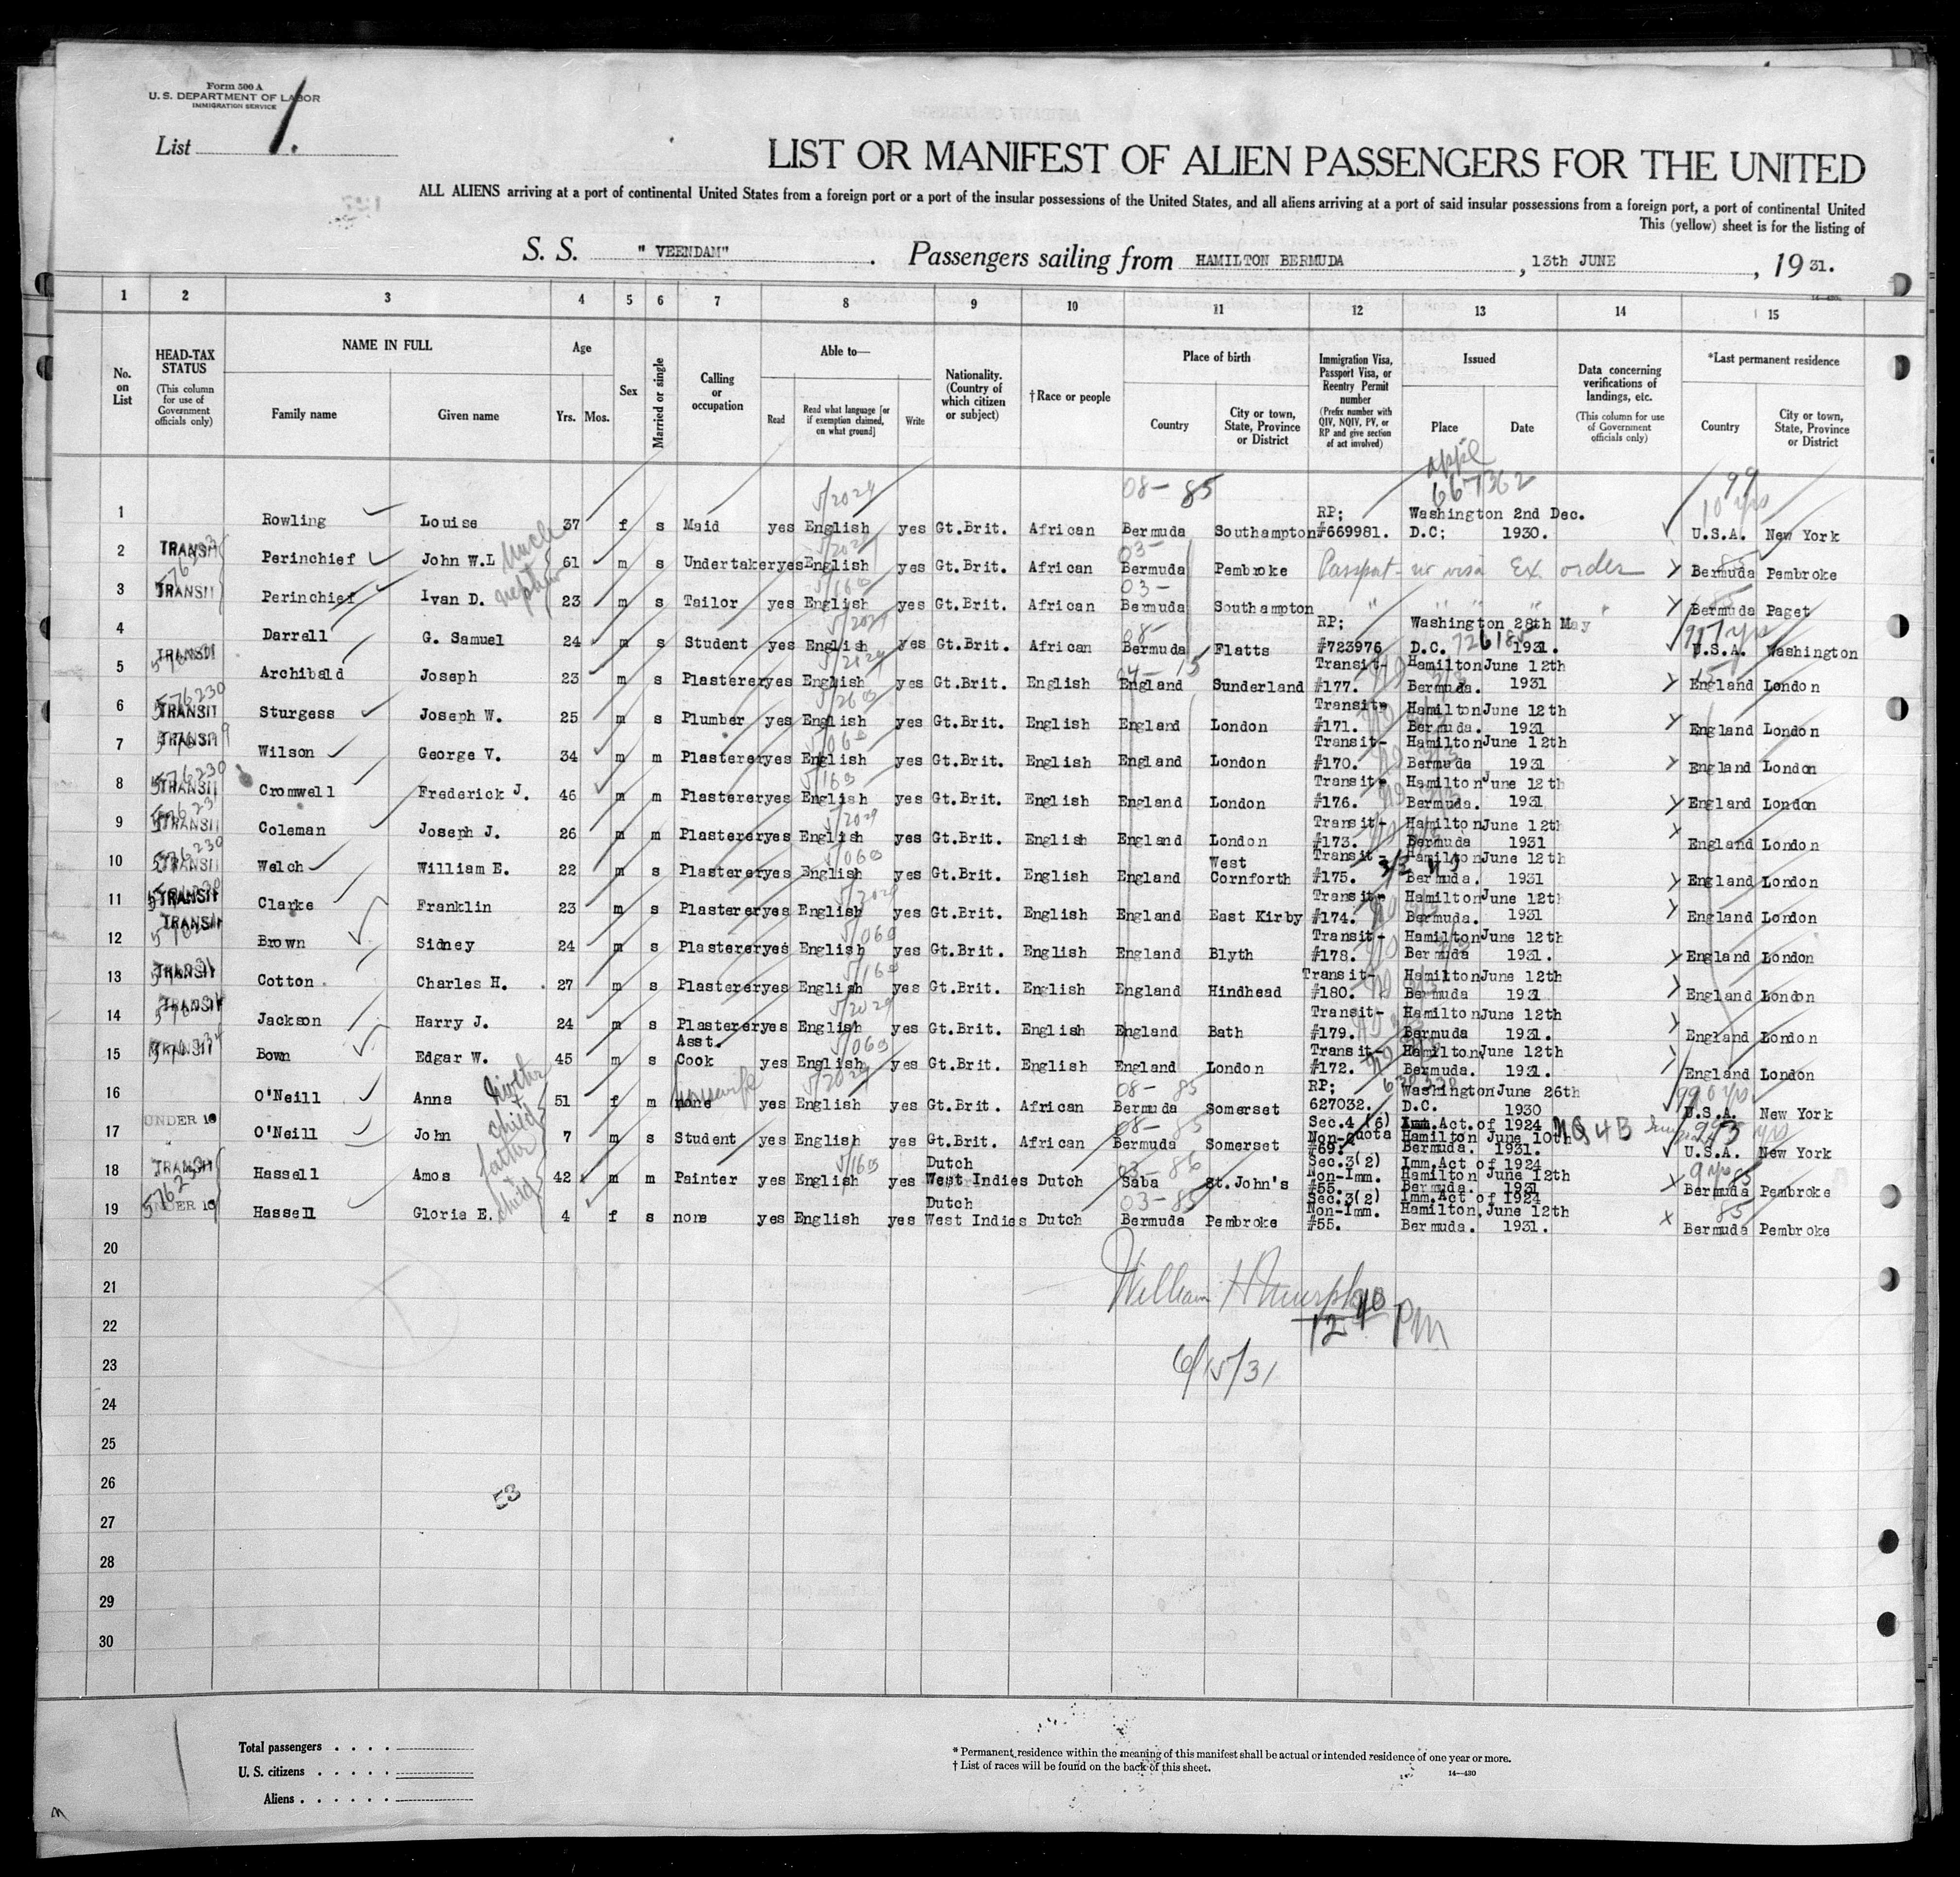 Form 500 A
U. S. DEPARTMENT OF LABOR
IMMIGRATION SERVICE
List 1.
LIST OR MANIFEST OF ALIEN PASSENGERS FOR THE UNITED
ALL ALIENS arriving at a port of continental United States from a foreign port or a port of the insular possessions of the United States, and all aliens arriving at a port of said insular possessions from a foreign port, a port of continental United
This (yellow) sheet is for the listing of
S. S. "VEENDAM" . Passengers sailing from HAMILTON BERMUDA , 13th JUNE , 19 31.
14-430
1 2 3 4 5 6 7 8 9 10 11 12 13 14 15
No. on List
HEAD-TAX STATUS (This column for use of Government officials only)
NAME IN FULL Family name Given name
Age Yrs. Mos.
Sex
Married or single
Calling or occupation
Able to— Read Read what language [or if exemption claimed, on what ground] Write
Nationality. (Country of which citizen or subject)
†Race or people
Place of birth Country City or town, State, Province or District
Immigration Visa, Passport Visa, or Reentry Permit number (Prefix number with QIV, NQIV, PV, or RP and give section of act involved)
Issued Place Date
Data concerning verifications of landings, etc. (This column for use of Government officials only)
*Last permanent residence Country City or town, State, Province or District
appl 667362
5/2029 08- 85 99 10 yrs
1 Rowling Louise 37 f s Maid yes English yes Gt.Brit. African Bermuda Southampton RP; #669981. Washington D.C; 2nd Dec. 1930. U.S.A. New York
2 TRANSIT Perinchief John W.L uncle 61 m s Undertaker yes English yes Gt.Brit. African 03- Bermuda Pembroke Passport - no visa Ex. order Bermuda Pembroke
3 TRANSIT Perinchief Ivan D. nephew 23 m s Tailor yes English yes Gt.Brit. African 03- Bermuda Southampton " " " " Bermuda Paget
4 Darrell G. Samuel 24 m s Student yes English yes Gt.Brit. African 08- Bermuda Flatts RP; #723976 Washington D.C. 28th May 1931. 726185 U.S.A. Washington
5 TRANSIT Archibald Joseph 23 m s Plasterer yes English yes Gt.Brit. English England Sunderland Transit- #177. Hamilton Bermuda. June 12th 1931 England London
6 576230 TRANSIT Sturgess Joseph W. 25 m s Plumber yes English yes Gt.Brit. English England London Transit- #171. Hamilton Bermuda. June 12th 1931 England London
7 TRANSIT Wilson George V. 34 m m Plasterer yes English yes Gt.Brit. English England London Transit- #170. Hamilton Bermuda June 12th 1931 England London
8 576230 TRANSIT Cromwell Frederick J. 46 m m Plasterer yes English yes Gt.Brit. English England London Transit- #176. Hamilton Bermuda. June 12th 1931 England London
9 TRANSIT Coleman Joseph J. 26 m m Plasterer yes English yes Gt.Brit. English England London Transit- #173. Hamilton Bermuda June 12th 1931 England London
10 576230 TRANSIT Welch William E. 22 m s Plasterer yes English yes Gt.Brit. English England West Cornforth Transit- #175. Hamilton Bermuda. June 12th 1931 England London
11 TRANSIT Clarke Franklin 23 m s Plasterer yes English yes Gt.Brit. English England East Kirby Transit- #174. Hamilton Bermuda. June 12th 1931 England London
12 TRANSIT Brown Sidney 24 m s Plasterer yes English yes Gt.Brit. English England Blyth Transit- #178. Hamilton Bermuda June 12th 1931. England London
13 TRANSIT Cotton Charles H. 27 m s Plasterer yes English yes Gt.Brit. English England Hindhead Transit- #180. Hamilton Bermuda June 12th 1931 England London
14 TRANSIT Jackson Harry J. 24 m s Plasterer yes English yes Gt.Brit. English England Bath Transit- #179. Hamilton Bermuda June 12th 1931. England London
15 TRANSIT Bown Edgar W. 45 m s Asst. Cook yes English yes Gt.Brit. English England London Transit- #172. Hamilton Bermuda. June 12th 1931. England London
16 O'Neill Anna mother 51 f m none housewife yes English yes Gt.Brit. African 08- 85 Bermuda Somerset RP; 627032. Washington D.C. June 26th 1930 U.S.A. New York
17 UNDER 16 O'Neill John child 7 m s Student yes English yes Gt.Brit. African 08- 85 Bermuda Somerset Sec.4 (6) Non-Quota #69. Imm.Act. of 1924 Hamilton Bermuda. June 10th 1931. NQ 4B U.S.A. New York
18 TRANSIT Hassell Amos father 42 m m Painter yes English yes Dutch West Indies Dutch Saba St.John's Sec.3(2) Non-Imm. #55. Imm.Act of 1924 Hamilton Bermuda. June 12th 1931 Bermuda Pembroke
19 UNDER 16 Hassell Gloria E. child 4 f s none yes English yes Dutch West Indies Dutch 03-85 Bermuda Pembroke Sec.3(2) Non-Imm. #55. Imm.Act of 1924 Hamilton, Bermuda. June 12th 1931. Bermuda Pembroke
20
21
William H Murphy
22
12 40 PM
23
6/15/31
24
25
26
53
27
28
29
30
Total passengers . . . .
U. S. citizens . . . . .
Aliens . . . . . .
* Permanent residence within the meaning of this manifest shall be actual or intended residence of one year or more.
† List of races will be found on the back of this sheet.
14—430